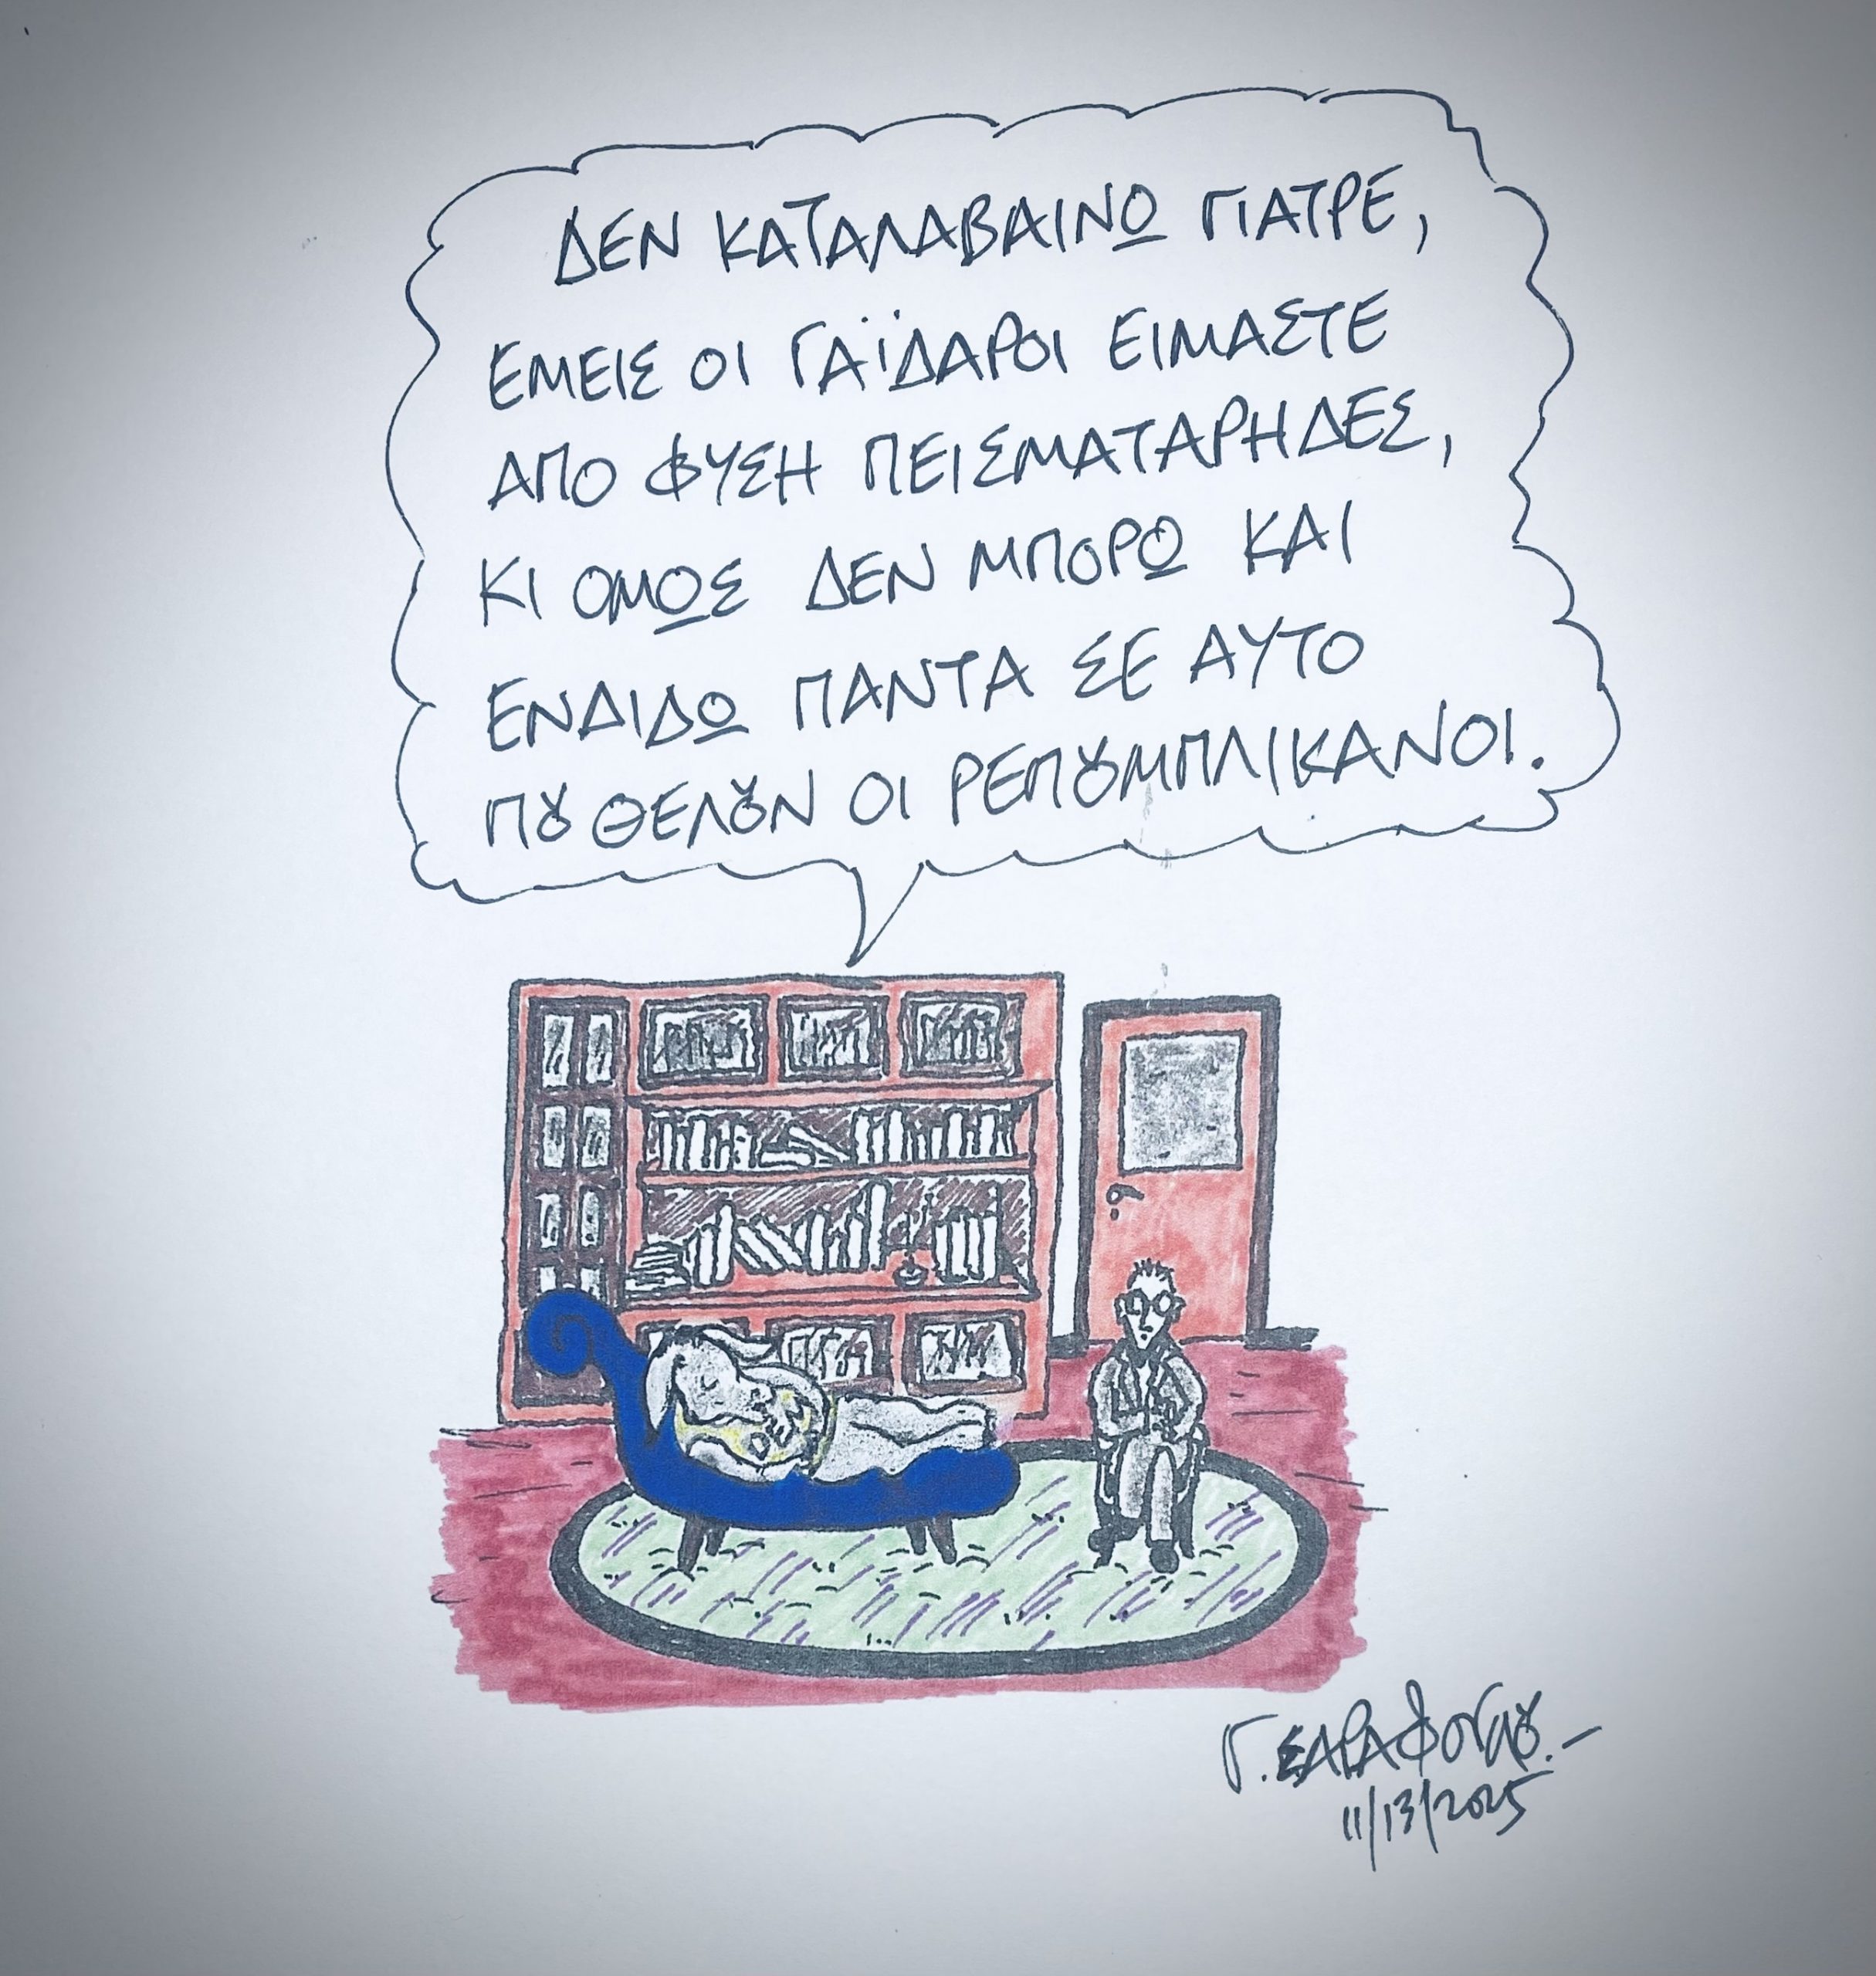 ΔΕΝ ΚΑΤΑΛΑΒΑΙΝΩ ΓΙΑΤΡΕ,
ΕΜΕΙΣ ΟΙ ΓΑΪΔΑΡΟΙ ΕΙΜΑΣΤΕ
ΑΠΟ ΦΥΣΗ ΠΕΙΣΜΑΤΑΡΗΔΕΣ,
ΚΙ ΟΜΩΣ ΔΕΝ ΜΠΟΡΩ ΚΑΙ
ΕΝΔΙΔΩ ΠΑΝΤΑ ΣΕ ΑΥΤΟ
ΠΟΥ ΘΕΛΟΥΝ ΟΙ ΡΕΠΟΥΜΠΛΙΚΑΝΟΙ.
DEM
Γ. ΣΑΡΑΦΟΓΛΟΥ.-
11/13/2025